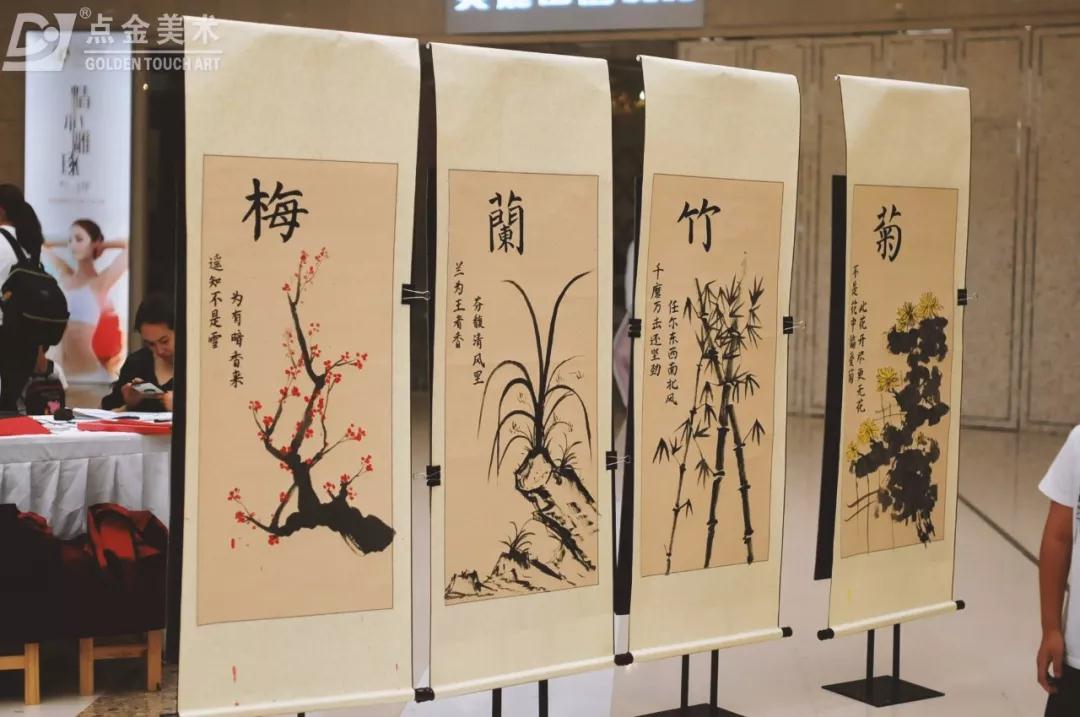 点金美术
GOLDEN TOUCH ART
梅
遥知不是雪
为有暗香来
蘭
兰为王者香
芬馥清风里
竹
千磨万击还坚劲
任尔东西南北风
菊
不是花中偏爱菊
此花开尽更无花